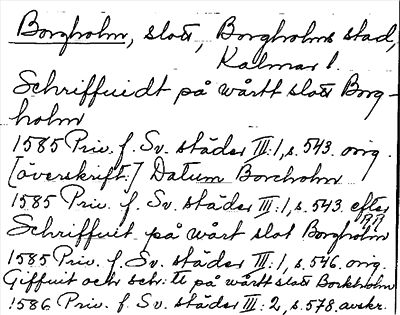 Borgholm, slott, Borgholms stad,
Kalmar l.
Schriffuidt på wårtt slott Borg-
holm
1585 Priv. f. Sv. städer III:1, s. 543. orig.
[överskrift:] Datum Borcholm
1585 Priv. f. Sv. städer III:1, s. 543. efter
Schriffuit på wårt slot Borgholm
1585 Priv. f. Sv. städer III:1, s. 546. orig.
Giffuit och schr: tt på wårtt slott Borckholm
1586 Priv. f. Sv. städer III:2, s. 578. avskr.